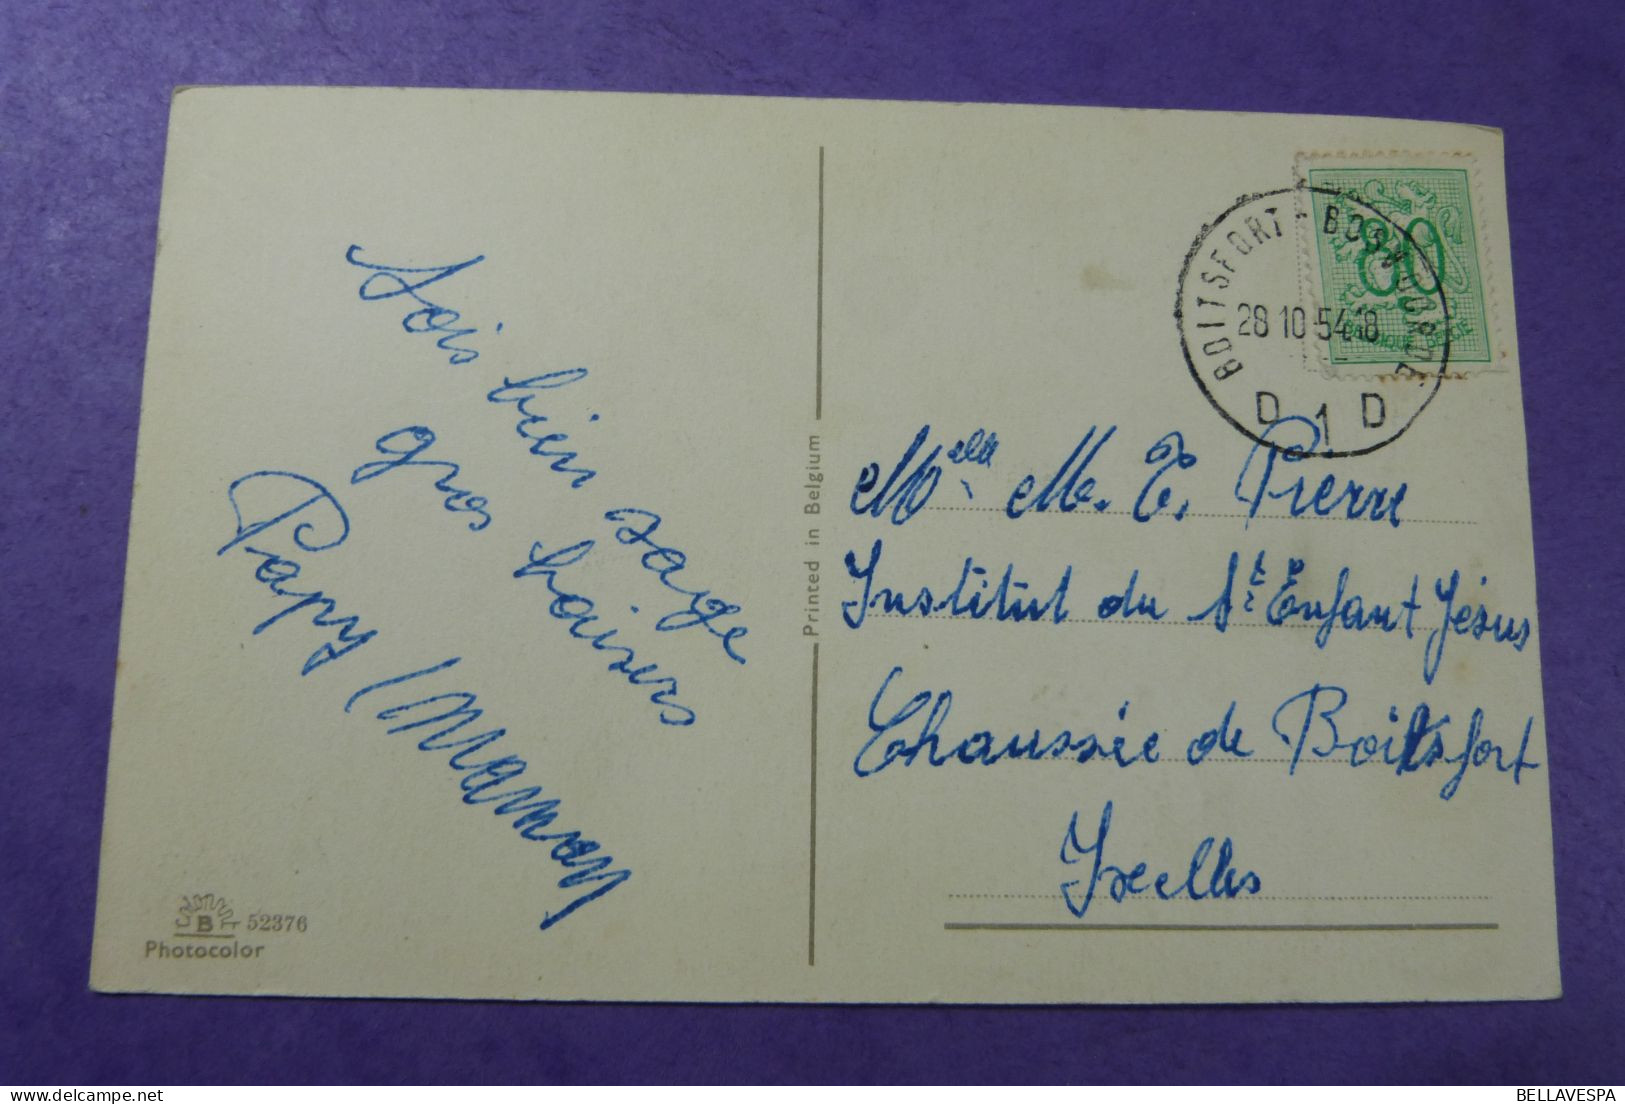 Sois bien sage
gros baisers
Papy Maman
B 52376
Photocolor
Printed in Belgium
BOITSFORT - BOSVOORDE
28 10 54 18
D 1 D
80
BELGIQUE BELGIE
Melle M. T. Pierre
Institut du St Enfant Jésus
Chaussée de Boitsfort
Ixelles
BELLAVESPA